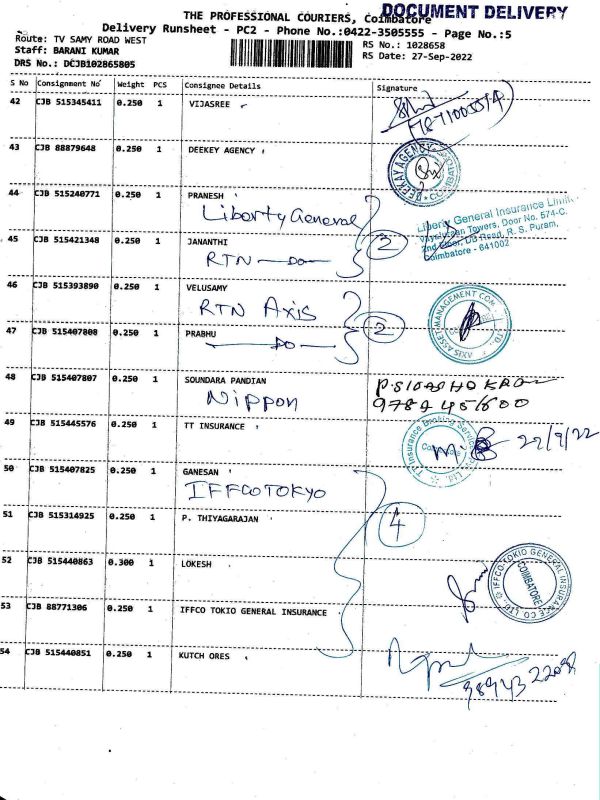 DOCUMENT DELIVERY
THE PROFESSIONAL COURIERS, Coimbatore
Delivery Runsheet - PC2 - Phone No.:0422-3505555 - Page No.:5
Route: TV SAMY ROAD WEST
RS No.: 1028658
Staff: BARANI KUMAR
RS Date: 27-Sep-2022
DRS No.: DCJB102865805
S No Consignment No Weight PCS Consignee Details Signature
42 CJB 515345411 0.250 1 VIJASREE
43 CJB 88879648 0.250 1 DEEKEY AGENCY
DEEKAY AGENCY
44 CJB 515240771 0.250 1 PRANESH
Liberty General
Liberty General Insurance Limit
Vijayasreen Towers, Door No. 574-C,
2nd Floor, DB Road, R. S. Puram,
Coimbatore - 641002
45 CJB 515421348 0.250 1 JANANTHI
RTN —DO—
2
46 CJB 515393890 0.250 1 VELUSAMY
RTN Axis
2
47 CJB 515407808 0.250 1 PRABHU
—DO—
AXIS ASSET MANAGEMENT COM
48 CJB 515407807 0.250 1 SOUNDARA PANDIAN
Nippon
49 CJB 515445576 0.250 1 TT INSURANCE
TT Insurance Broking Services
22/9/22
50 CJB 515407825 0.250 1 GANESAN
IFFCO TOKYO
51 CJB 515314925 0.250 1 P. THIYAGARAJAN
4
52 CJB 515440863 0.300 1 LOKESH
IFFCO-TOKIO GENERAL INSURANCE CO LTD
COIMBATORE
53 CJB 88771306 0.250 1 IFFCO TOKIO GENERAL INSURANCE
54 CJB 515440851 0.250 1 KUTCH ORES